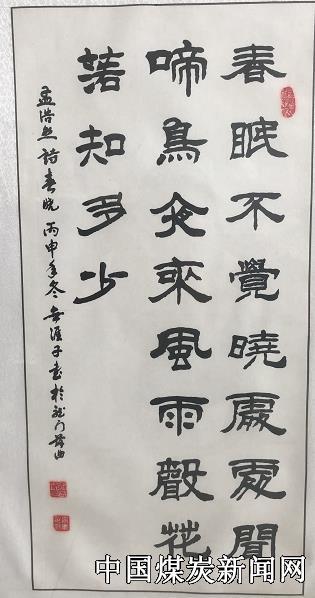 春眠不覺曉處處聞
啼鳥夜來風雨聲花
落知多少
孟浩然詩春晓 丙申年冬 无涯子书於龙门
中国煤炭新闻网